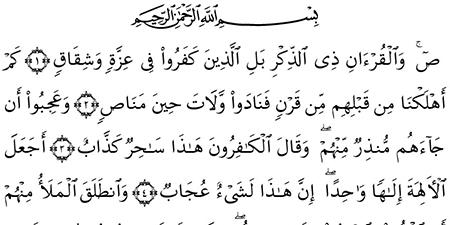 بِسْمِ ٱللَّهِ ٱلرَّحْمَٰنِ ٱلرَّحِيمِ
صٓ ۚ وَٱلْقُرْءَانِ ذِى ٱلذِّكْرِ بَلِ ٱلَّذِينَ كَفَرُوا۟ فِى عِزَّةٍ وَشِقَاقٍ ﴿١﴾ كَمْ
أَهْلَكْنَا مِن قَبْلِهِم مِّن قَرْنٍ فَنَادَوا۟ وَّلَاتَ حِينَ مَنَاصٍ ﴿٢﴾ وَعَجِبُوٓا۟ أَن
جَآءَهُم مُّنذِرٌ مِّنْهُمْ ۖ وَقَالَ ٱلْكَٰفِرُونَ هَٰذَا سَٰحِرٌ كَذَّابٌ ﴿٣﴾ أَجَعَلَ
ٱلْءَالِهَةَ إِلَٰهًا وَٰحِدًا ۖ إِنَّ هَٰذَا لَشَىْءٌ عُجَابٌ ﴿٤﴾ وَٱنطَلَقَ ٱلْمَلَأُ مِنْهُمْ